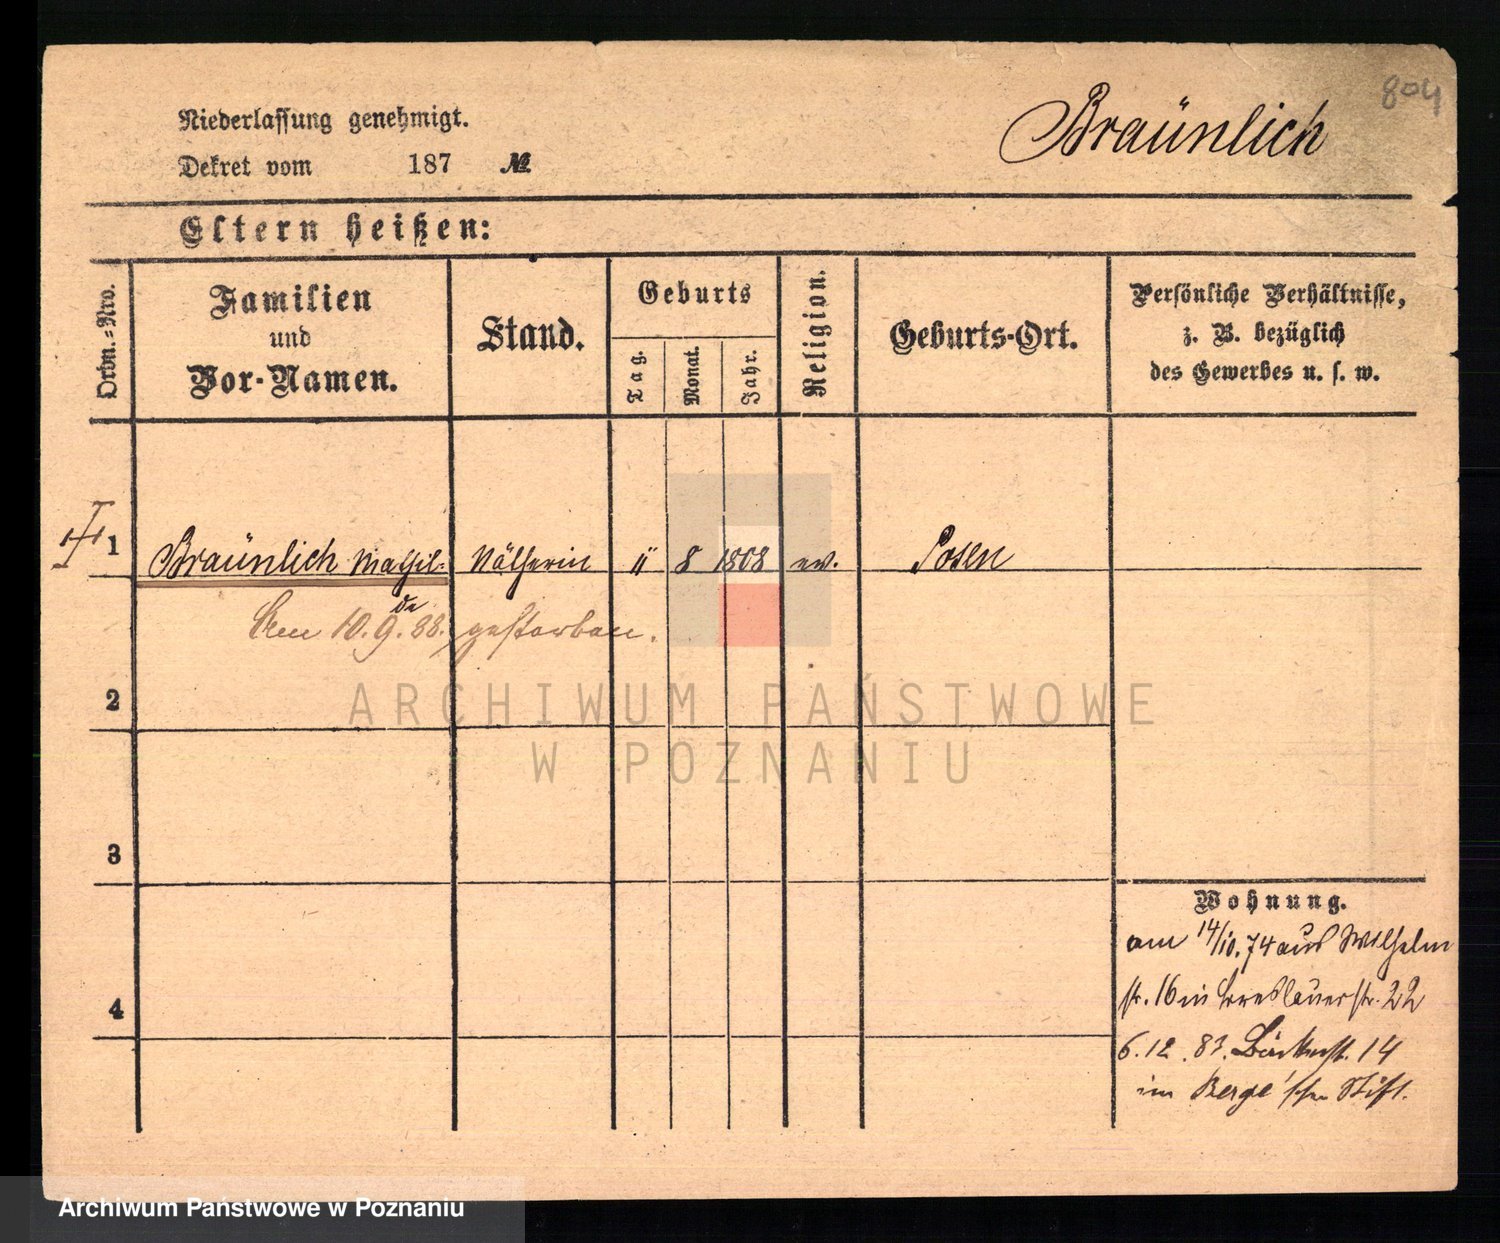 804
Bräünlich
Niederlassung genehmigt.
Dekret vom 187 №
Eltern heißen:
Ordn.-Nro.
Familien
und
Vor-Namen.
Stand.
Geburts
Tag.
Monat.
Jahr.
Religion.
Geburts-Ort.
Persönliche Verhältnisse,
z. B. bezüglich
des Gewerbes u. s. w.
1 Bräünlich Mathil- Nätherin 11 8 1808 ev. Posen
de
Am 10. 9. 88. gestorben.
2
3
4
Wohnung.
am 14/10. 74 aus Wilhelm
str. 16 in Breslauerstr. 22
6. 12. 83. Bäckerst. 14
im Berge'schen Stift.
ARCHIWUM PAŃSTWOWE
W POZNANIU
Archiwum Państwowe w Poznaniu